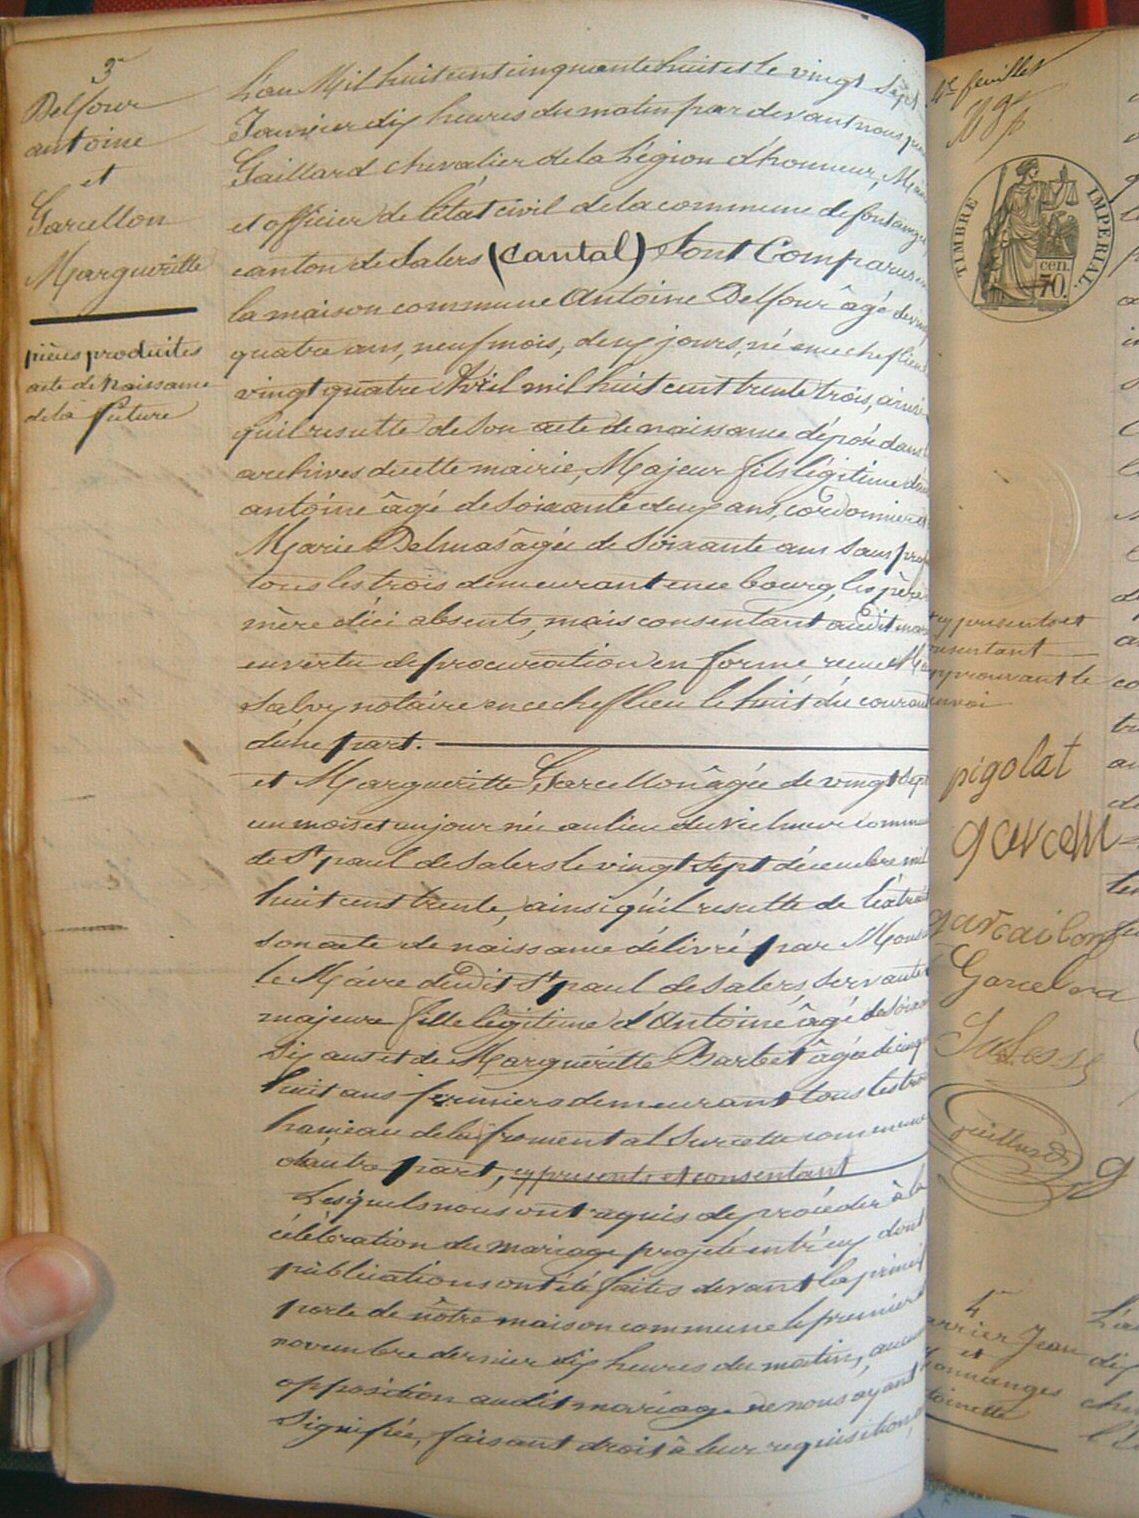 3e
Delfour
antoine
et
Garcellon
Margueritte
pièces produites
acte de Naissance
de la future
L'an Mil huit cent cinquante huit et le vingt sept
Janvier dix heures du matin par devant nous
Gaillard chevalier de la Légion d'honneur, Maire
et officier de l'état civil de la commune de fontanges
canton de Salers (Cantal) Sont Comparus en
la maison commune Antoine Delfour âgé de vingt
quatre ans, neuf mois, deux jours, né en ce chef lieu
vingt quatre Avril mil huit cent trente trois, ainsi
qu'il resulte de Son acte de naissance déposé dans
archives de cette mairie, Majeur fils légitime
antoine âgé de soixante deux ans, cordonnier et
Marie Delmas âgée de Soixante ans Sans
tous les trois demeurant en ce bourg, les père
mère d'ici absents, mais consentant audit
en vertu de procuration en forme recue
Salvy notaire en ce chef lieu le huit du courant
d'une part.
et Margueritte Garcellon âgée de vingt sept
un mois et un jour née au lieu du commune
de St paul de Salers le vingt sept décembre mil
huit cent trente, ainsi qu'il resulte de l'extrait
son acte de naissance délivré par
le Maire dudit St paul de Salers Servante
majeure fille légitime d'Antoine âgé de soixante
Six ans et de Margueritte Barbet âgée de
huit ans fermiers demeurant tous les trois
hameau de la fromental Sur cette commune
d'autre part, cy presents et consentant
Lesquels nous ont requis de procéder à la
célébration du mariage projeté entr'eux dont
publications ont été faites devant la
porte de nôtre maison commune le premier
novembre dernier dix heures du matin, aucune
opposition audit mariage ne nous ayant
Signifiée, faisant droit à leur requisition,
4e feuillet
TIMBRE IMPERIAL.
70 cen.
cy presents et
consentant
approuvant le
renvoi
pigolat
garcell
garcailon
Garcelon
Salesse
Gaillard
4e
Jean
et